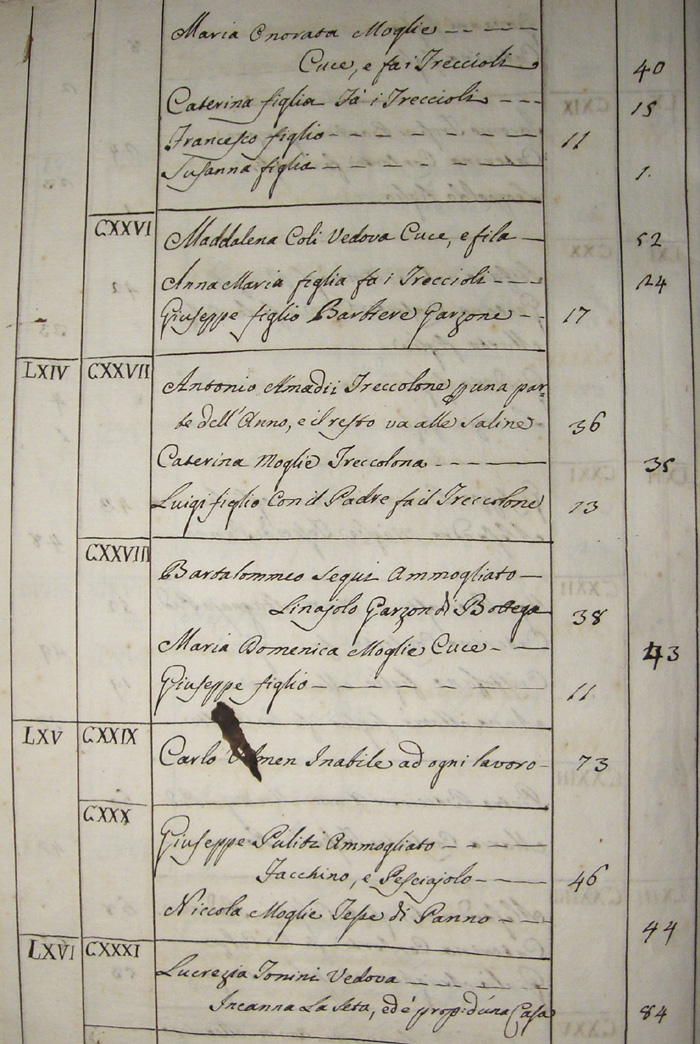 Maria Onorata Moglie
Cuce, e fa i Treccioli 40
Caterina figlia fà i Treccioli 15
Francesco figlio 11
Susanna figlia 1.
CXXVI
Maddalena Coli Vedova Cuce, e fila 52
Anna Maria figlia fa i Treccioli 24
Giuseppe figlio Barbiere Garzone 17
LXIV CXXVII
Antonio Amadii Treccolone p una par=
te dell'Anno, e il resto va alle Saline 36
Caterina Moglie Treccolona 35
Luigi figlio con il Padre fa il Treccolone 13
CXXVIII
Bartalommeo Segui Ammogliato
Linajolo Garzon di Bottega 38
Maria Domenica Moglie Cuce 43
Giuseppe figlio 11
LXV CXXIX
Carlo Inabile ad ogni lavoro 73
CXXX
Giuseppe Puliti Ammogliato
Facchino, e Pesciajolo 46
Niccola Moglie Tesse di Panno 44
LXVI CXXXI
Lucrezia Tonini Vedova
Incanna La Seta, ed è prop: d'una Casa 84